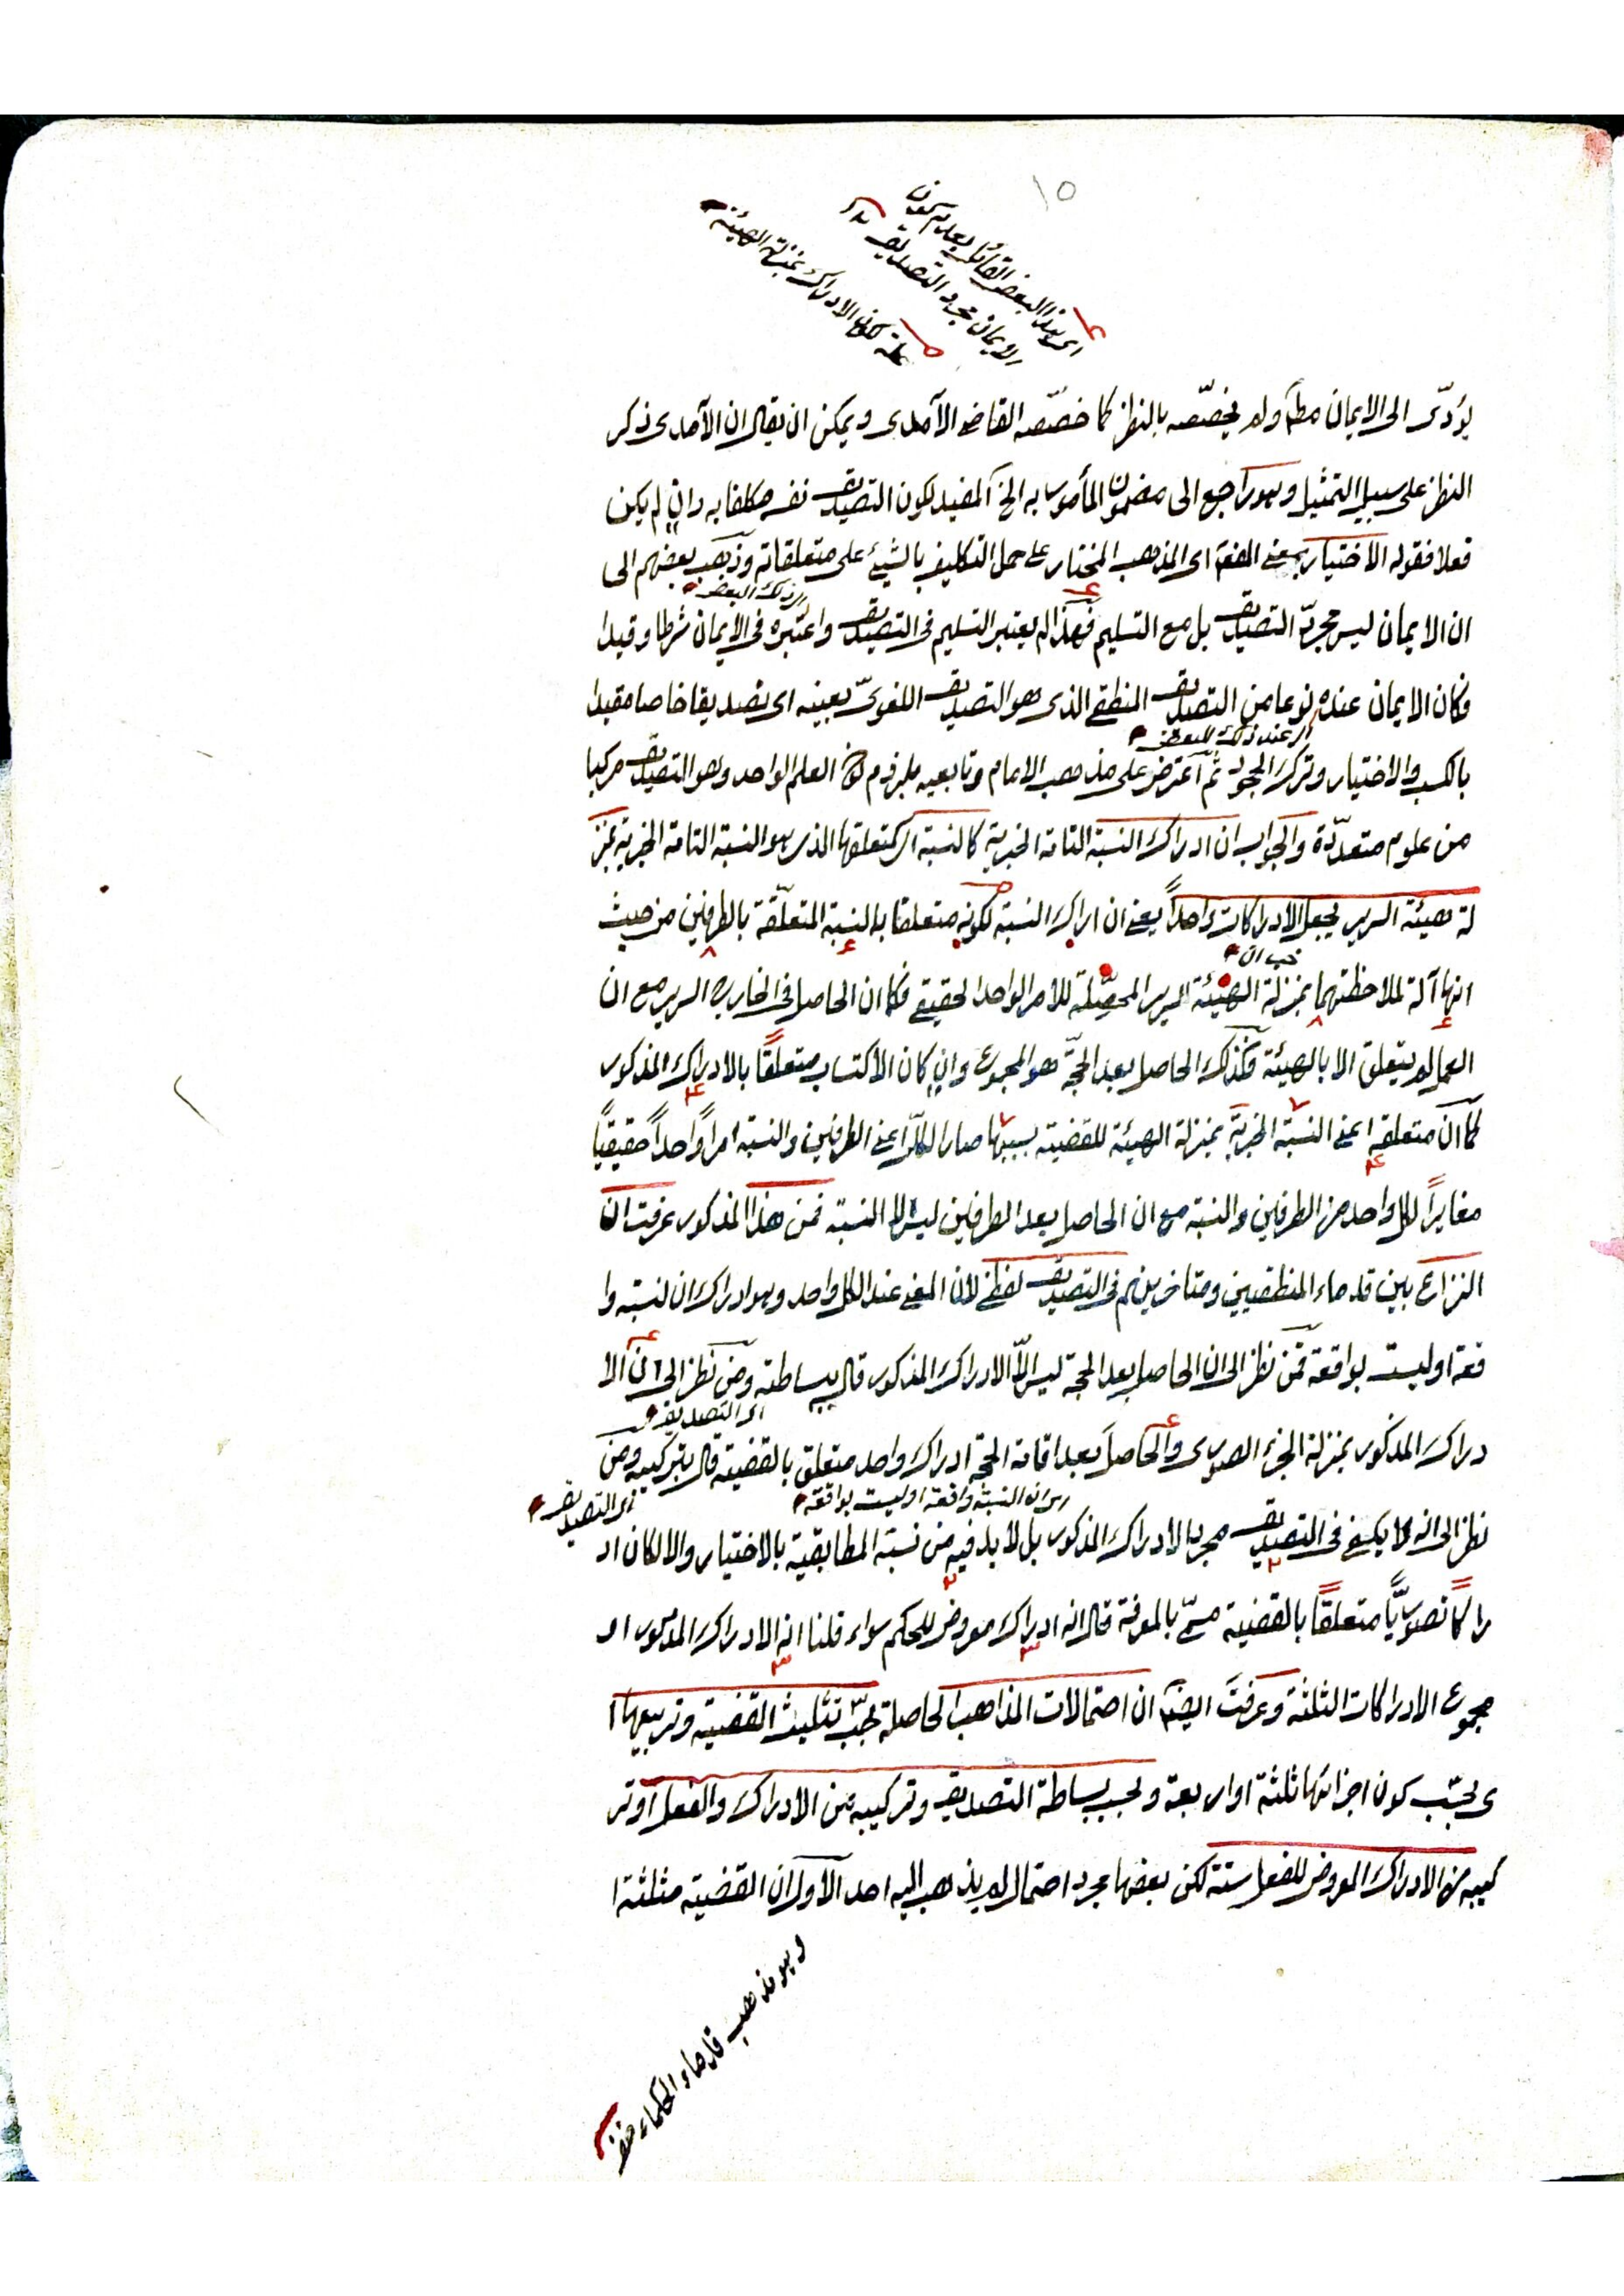 ١٥
اى هذا البعض القائل بعدم كون
الايمان مجرد التصديق
علة لكون الادراك بمنزلة الهيئة
يؤدّى الى الايمان مطلقا ولم يخصّصه بالنظر كما خصّصه القاضى الآمدى ويمكن ان يقال ان الآمدى ذكر
النظر على سبيل التمثيل وهو راجع الى مضمون المأمور به الخ المفيد لكون التصديق نفسه مكلفا به وان لم يكن
فعلا فقوله الاختيار بمعنى المفعول اى المذهب المختار على حمل التكليف بالشيئ على متعلقاته وذهب بعضهم الى
اى ذلك البعض
ان الايمان ليس مجردّ التصديق بل مع التسليم فهذا لم يعتبر التسليم فى التصديق واعتبره فى الايمان شرطا وقيدا
فكان الايمان عنده نوعا من التصديق المنطقى الذى هو التصديق اللغوىّ بعينه اى تصديقا خاصا مقيدا
اى عند ذلك البعض
بالكسب والاختيار وترك الجحود ثم اعترض على مذهب الامام وتابعيه بلزوم كون العلم الواحد وهو التصديق مركبا
من علوم متعدّدة والجواب ان ادراك النسبة التامة الخبرية كالنسبة اى كمتعلقها الذى هو النسبة التامة الخبرية بمنز
لة هيئة السرير يجعل الادراكات واحداً يعنى ان ادراك النسبة لكونه متعلقا بالنسبة المتعلّقة بالطرفين من حيث
خبر ان
انها آلة لملاحظتهما بمنزلة الهيئة السرير المحصّلة للامر الواحد الحقيقى فكما ان الحاصل فى الخارج السرير مع ان
العمل لم يتعلق الا بالهيئة فكذلك الحاصل بعد الحجّة هو المجموع وان كان الاكتساب متعلقًا بالادراك المذكور
كما ان متعلقه اعنى النسبة الخبرية بمنزلة الهيئة للقضية بسببها صار الكلّ اعنى الطرفين والنسبة امراً واحداً حقيقياً
مغايراً لكل واحد من الطرفين والنسبة مع ان الحاصل بعد الطرفين ليس الا النسبة فمن هذا المذكور عرفت ان
النزاع بين قدماء المنطقيين ومتاخرينهم فى التصديق لفظى لان المعنى عند الكل واحد وهو ادراك ان النسبة وا
قعة او ليست بواقعة فمن نظر الى ان الحاصل بعد الحجة ليس الّا الادراك المذكور قال ببساطته ومن نظر الى ان الا
اى التصديق
دراك المذكور بمنزلة الجزء الصورى والحاصل بعد اقامة الحجة ادراك واحد متعلق بالقضية قال بتركيبه ومن
اى ان النسبة واقعة او ليست بواقعة
اى التصديق
نظر الى انه لا يكفى فى التصديق مجرد الادراك المذكور بل لا بد فيه من نسبة المطابقية بالاختيار والا لكان اد
راكًا تصوريًّا متعلقًا بالقضية مسمّى بالمعرفة قال انه ادراك معروض للحكم سواء قلنا انه الادراك المذكور او
مجموع الادراكات الثلثة وعرفت ايضا ان احتمالات المذاهب الحاصلة بحسب تثليث القضية وتربيعها ا
ى بحسب كون اجزائها ثلثة او اربعة وبحسب بساطة التصديق وتركيبه من الادراك والفعل او تر
كيبه من الادراك المعروض للفعل ستة لكن بعضها مجرد احتمال لم يذهب اليه احد الاول ان القضية مثلثة ا
وهو مذهب قدماء الحكماء